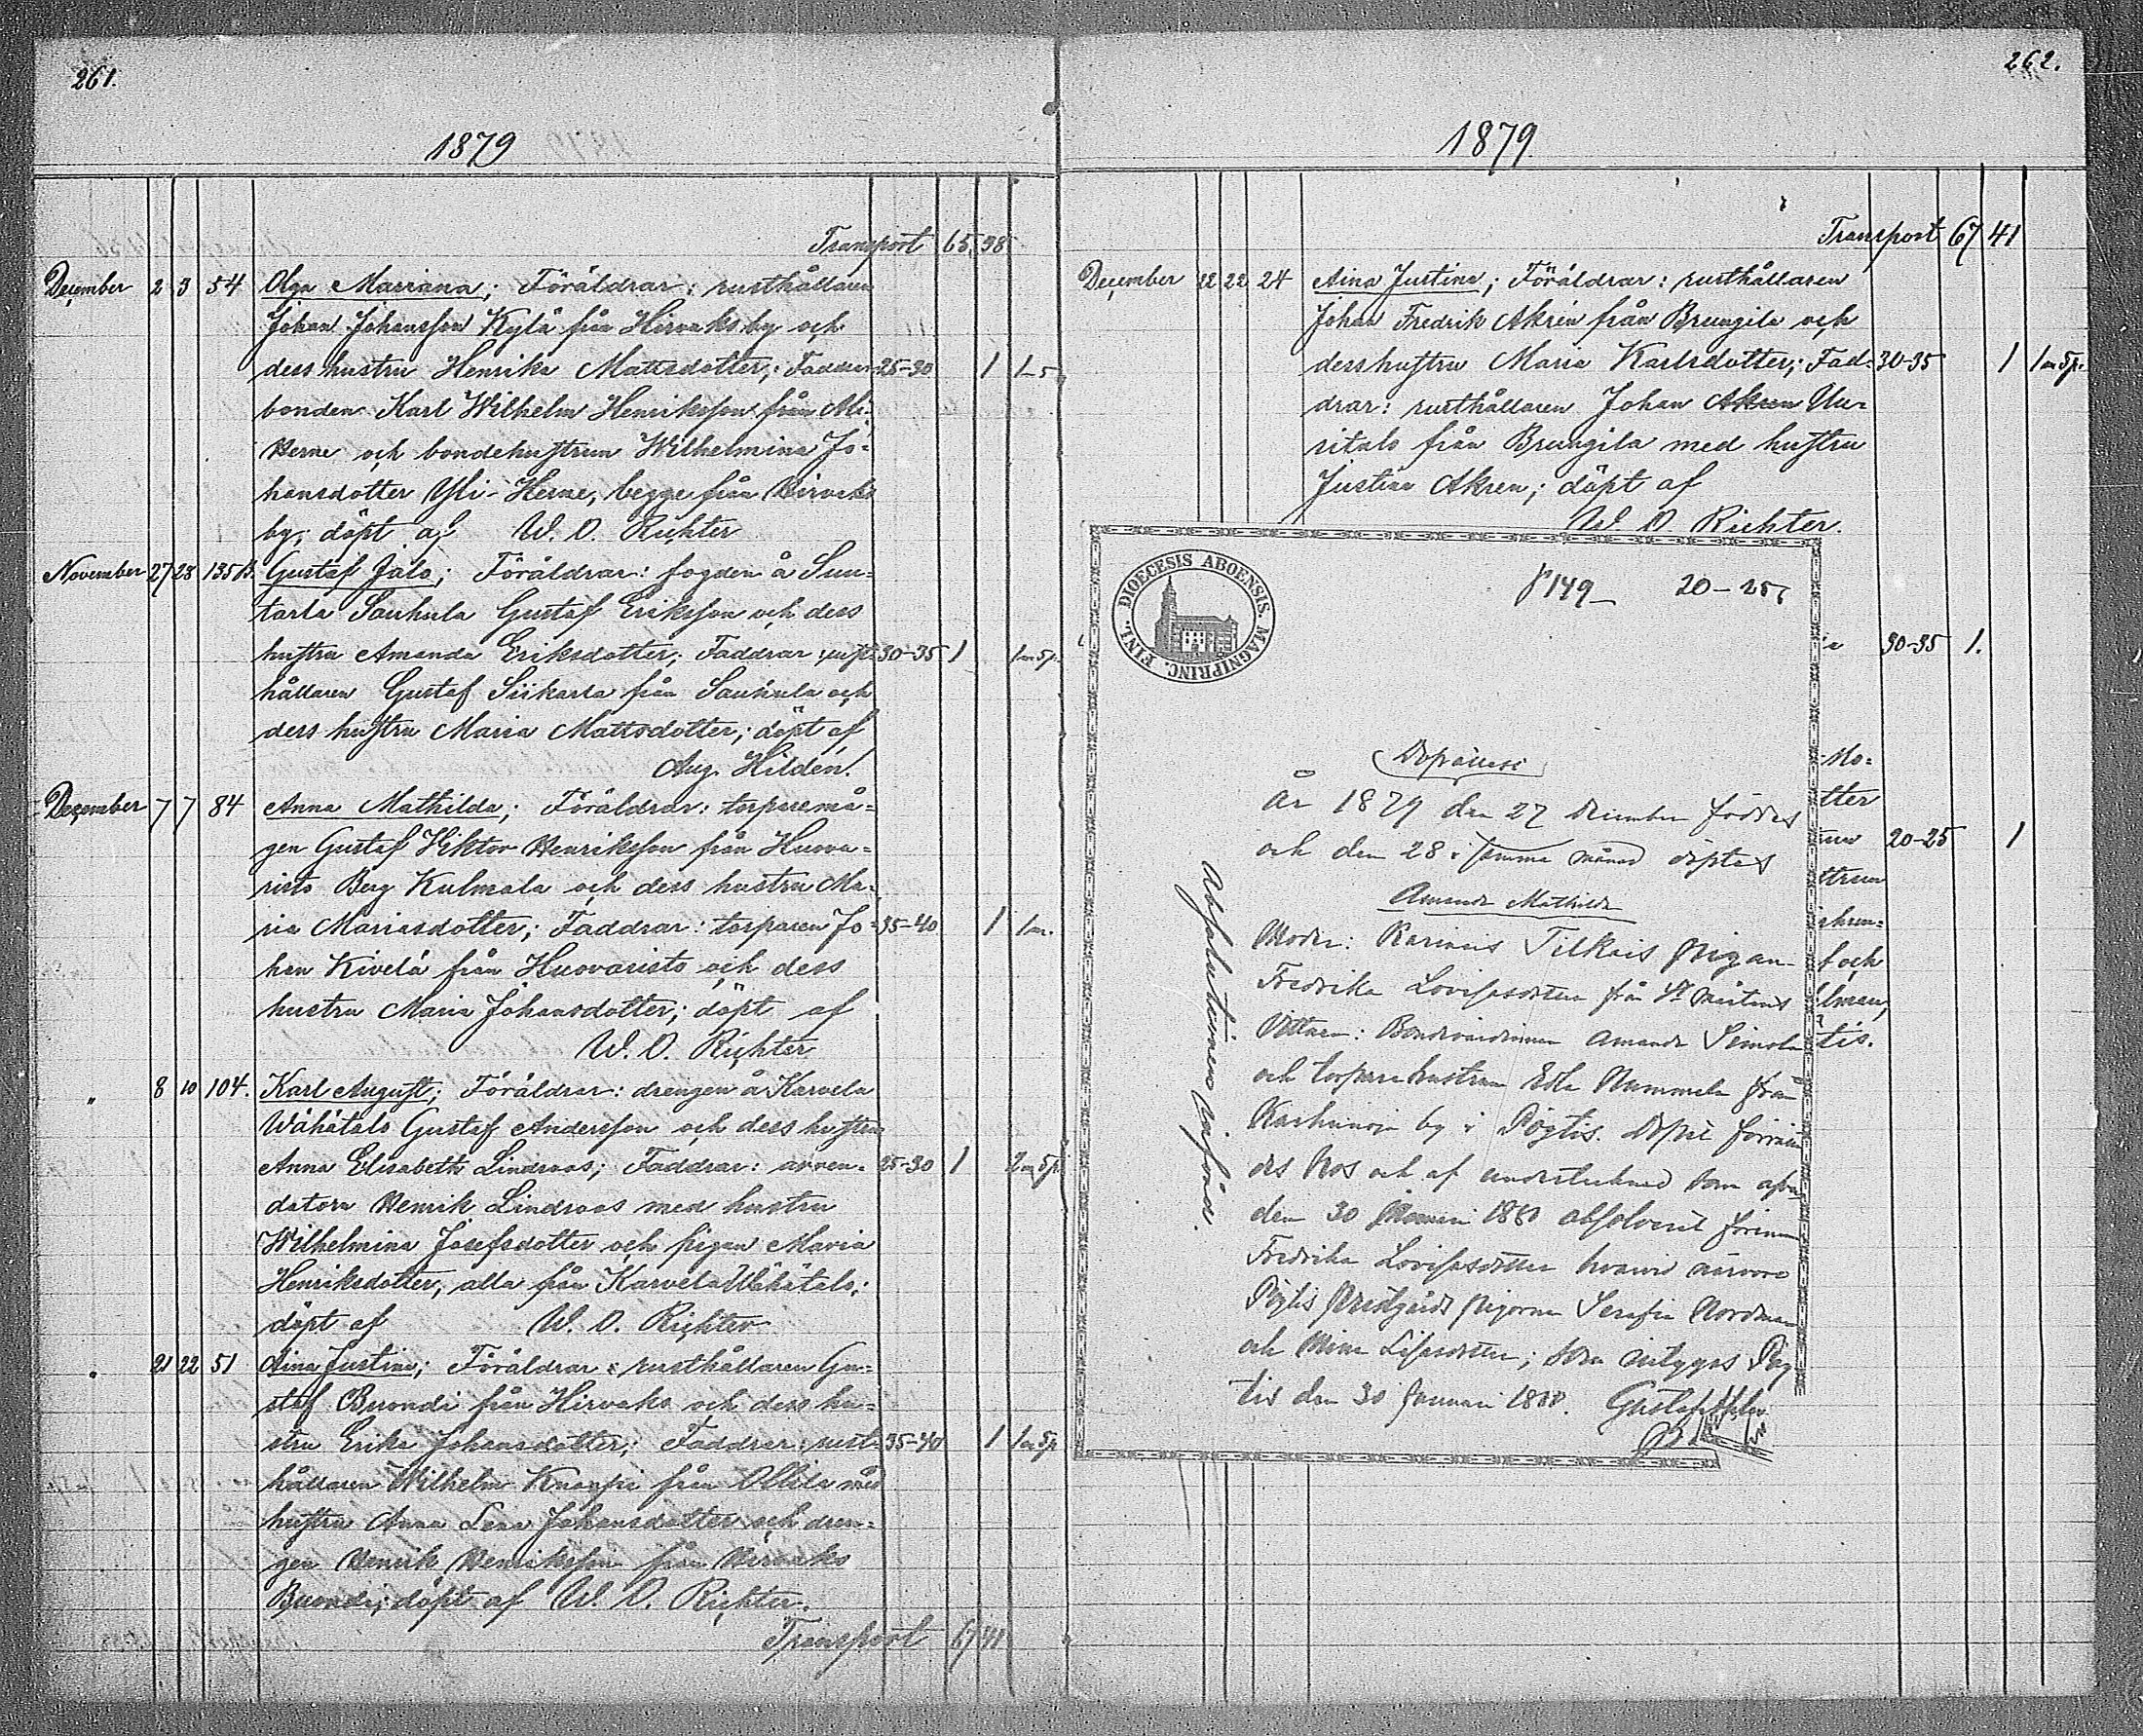 261.
1879
Transport 65 38
December 2 3 54 Olga Mariana; Föräldrar: rusthållaren
Johan Johansson Kylä från Hirvaks by och
dess hustru Henrika Mattsdotter; Faddrar 25-30 1 1 5
bonden Karl Wilhelm Henriksson från Ali-
Herne och bondehustrun Wilhelmina Jo-
hansdotter Yli-Herne, begge från Hirvaks
by; döpt af W. O. Richter
November 27 28 135 B. Gustaf Jalo; Föräldrar: fogden å Sun-
tarla Sauhula Gustaf Eriksson och dess
hustru Amanda Eriksdotter; Faddrar: rust- 30-35 1 1 m 5 p.
hållaren Gustaf Siikarla från Sauhula och
dess hustru Maria Mattsdotter; döpt af
Aug. Hildén.
December 7 7 84 Anna Mathilda; Föräldrar: torparemå-
gen Gustaf Viktor Henriksson från Huova-
risto Berg Kulmala och dess hustru Ma-
ria Mariasdotter; Faddrar: torparen Jo- 35-40 1 1 m.
han Kivelä från Huovaristo och dess
hustru Maria Johansdotter; döpt af
W. O. Richter
" 8 10 104. Karl August; Föräldrar: drengen å Karvela
Wähätalo Gustaf Andersson och dess hustru
Anna Elisabeth Lindroos; Faddrar: arren- 25-30 1 2 m 5 p
datorn Henrik Lindroos med hustru
Wilhelmina Josefsdotter och pigan Maria
Henriksdotter, alla från Karvela Wähätalo;
döpt af W. O. Richter
" 21 22 51 Aina Justina; Föräldrar: rusthållaren Gu-
staf Buondi från Hirvaks och dess hu-
stru Erika Johansdotter; Faddrar: rust- 35-40 1 1 m 5 p
hållaren Wilhelm Knaapi från Ollila med
hustru Anna Lena Johansdotter och dren-
gen Henrik Henriksson från Hirvaks
Buondi; döpt af W. O. Richter.
Transport 67 41
262.
1879
Transport 67 41
December 22 22 24 Aina Justina; Föräldrar: rusthållaren
Johan Fredrik Akrén från Brungila och
dess hustru Maria Karlsdotter; Fad- 30-35 1 1 m 5 p.
drar: rusthållaren Johan Akren Uu-
ritalo från Brungila med hustru
Justina Akren; döpt af
W. O. Richter.
DIOECESIS ABOENSIS. MAGNI PRINC. FINL.
p 149 20-25
a 30-35 1.
Dopattest
År 1879 den 27 December föddes
och den 28 i samma månad döptes
Amanda Mathilda
Moder: Karinais Tilkais pigan
Fredrika Lovisasdotter från St Mårtens
Vittnen: Bondevärdinnan Amanda Simola
och torparehustrun Edla Nummela från
Karhunoja by i Pöytis. Dopet förrätta-
des hos och af undertecknad som afven
den 30 Januari 1880 absolverat förenämnda
Fredrika Lovisasdotter hvarvid närvoro
Pöytis prestgårds pigorna Serafia Nordman
och Mina Lisasdotter; som intygas Pöy-
tis den 30 Januari 1880. Gustaf
Absolutionen införd.
Mo-
tter
20-25 1
ttrun
ehren-
f och
lman,
tis.